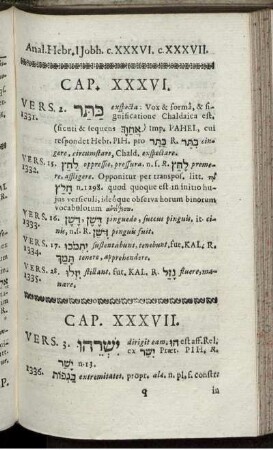 Anal. Hebr. I Jobh. c. XXXVI. c. XXXVII.
CAP. XXXVI.
VERS. 2. כַּתַּר exspecta: Vox & formâ, & si-
1331. gnificatione Chaldaica est,
(sicuti & sequens אֲחַוֶּךָּ) Imp. PAHEL, cui
respondet Hebr. PIH. pro כַּתֵּר R. כתר cin-
gere, circumstare, Chald. exspectare.
VERS. 15. לַחַץ oppressio, pressura. n. s. R. לָחַץ preme-
1332. re, affligere. Opponitur per transpos. litt. τῷ
חָלַץ n. 1298. quod quoque est in initio hu-
jus versiculi, ideóque observa horum binorum
vocabulorum
VERS. 16. דֶּשֶׁן, דָּשֵׁן pinguedo, succus pinguis, it. ci-
1333. nis, n. s. R. דָּשֵׁן pinguis fuit.
VERS. 17. יִתְמֹכוּ sustentabunt, tenebunt, fut. KAL: R.
1334. תָּמַךְ tenere, apprehendere.
VERS. 28. יִזְּלוּ stillant, fut. KAL. R. נָזַל fluere, ma-
1335. nare.
CAP. XXXVII.
VERS. 3. יִשְׁרֵהוּ dirigit eam, הוּ est aff. Rel.
ex יִשֵׁר Præt. PIH. R.
יָשַׁר n. 13.
1336. כַּנְפוֹת extremitates, propr. ala. n. pl. f. constr.
q in